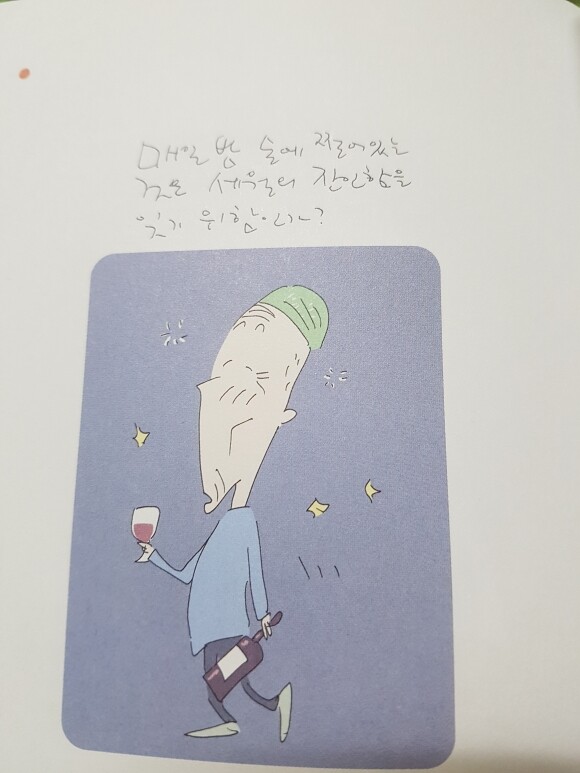 매일 밤 술에 쩔어있는
것도 세월의 잔인함을
잊기 위함인가?